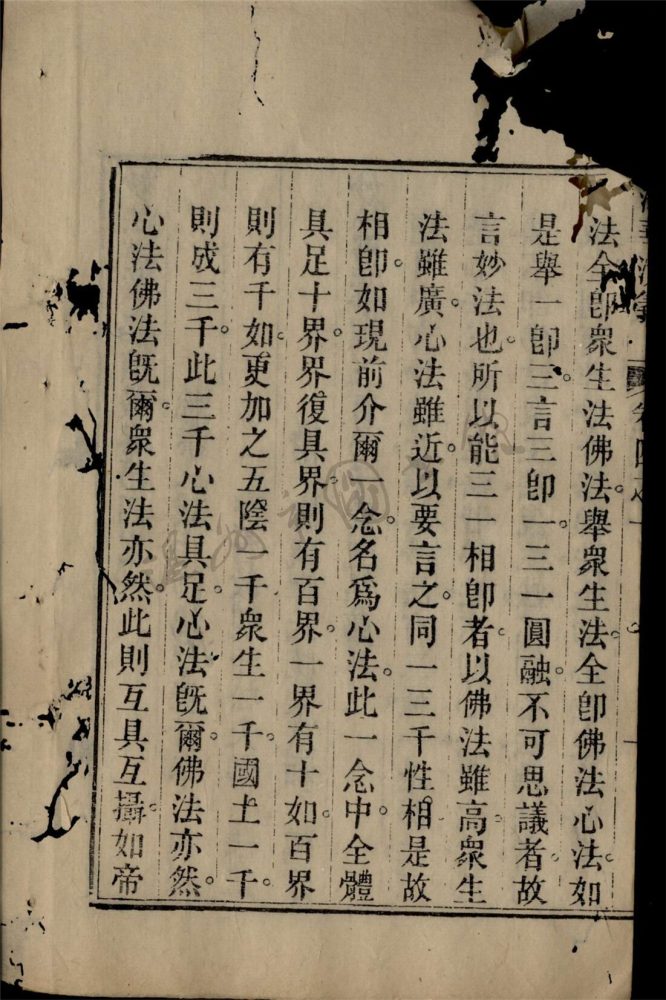 法全卽衆生法佛法。擧衆生法。全卽佛法心法如
是。擧一卽三。言三卽一。三一圓融。不可思議者。故
言妙法也。所以能三一相卽者。以佛法雖高衆生
法雖廣。心法雖近。以要言之。同一三千性相。是故
相卽。如現前介爾一念。名爲心法。此一念中。全體
具足十界。界復具界。則有百界。一界有十如。百界
則有千如。更加之五陰一千衆生一千。國土一千。
則成三千。此三千心法具足。心法旣爾。佛法亦然。
心法佛法旣爾。衆生法亦然。此則互具互攝。如帝
卷四之一